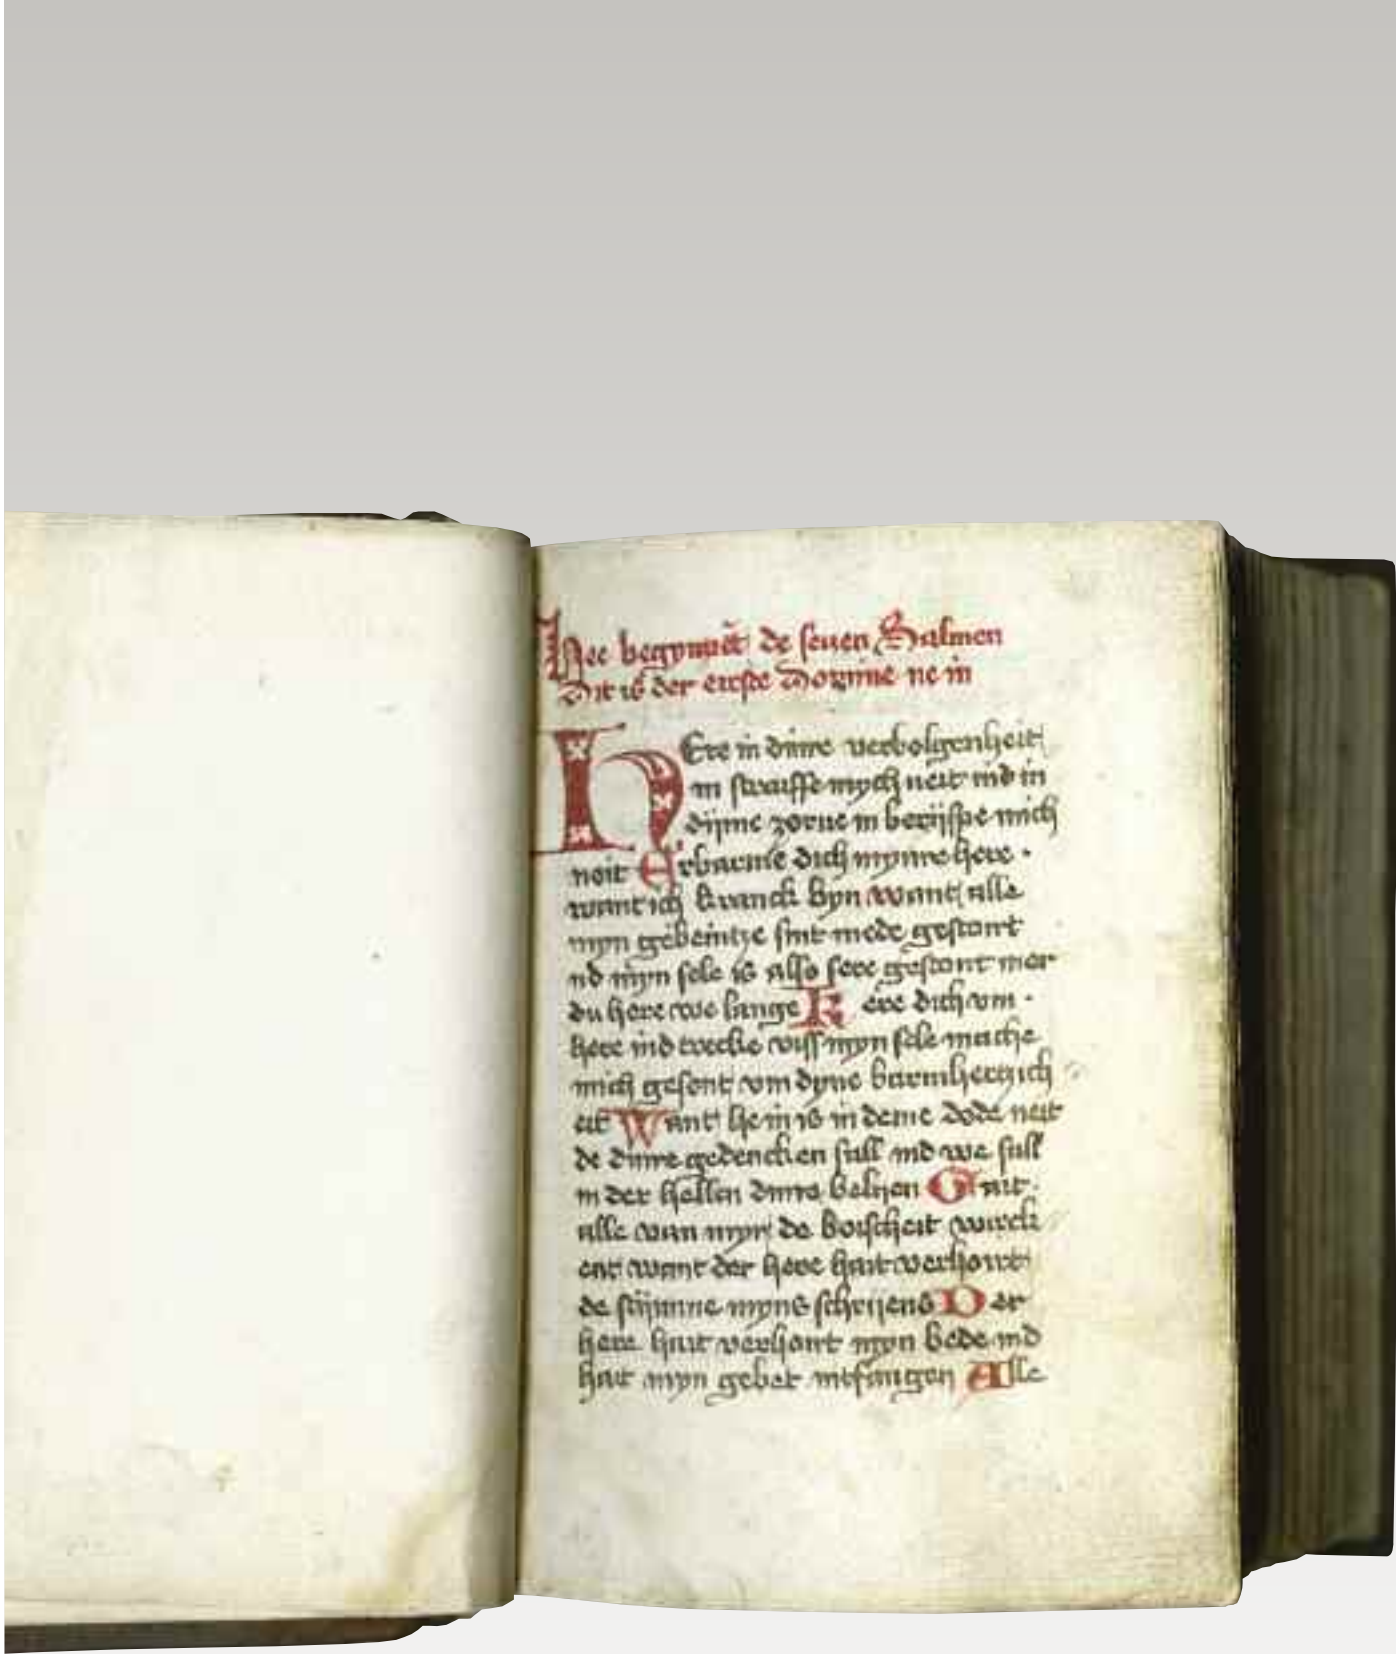 Hee begynnēt de seuen Salmen
Dit is der eirste Domine ne in
HEre in dinre verbolgenheit
in straiffe mych neit ind in
dijme zorne in berijspe mich
neit Erbarme dich mynre here ·
want ich kranck byn want alle
myn gebeintze sint mede gestort
nd myn sele is also sere gestort mer
du here we lange Kere dich vm ·
here ind trecke viss myn sele mache
mich gesont vm dyne barmhertzich
eit Want he in is in deme dode neit
de dinre gedencken sall ind we sall
in der hellen dinre belijen Gait ·
alle van myr de boischeit wirck
ent want der here hait verhoirt
de stijmme myns schrijens Der
here hait verhoirt myn bede ind
hait myn gebet intfangen Alle